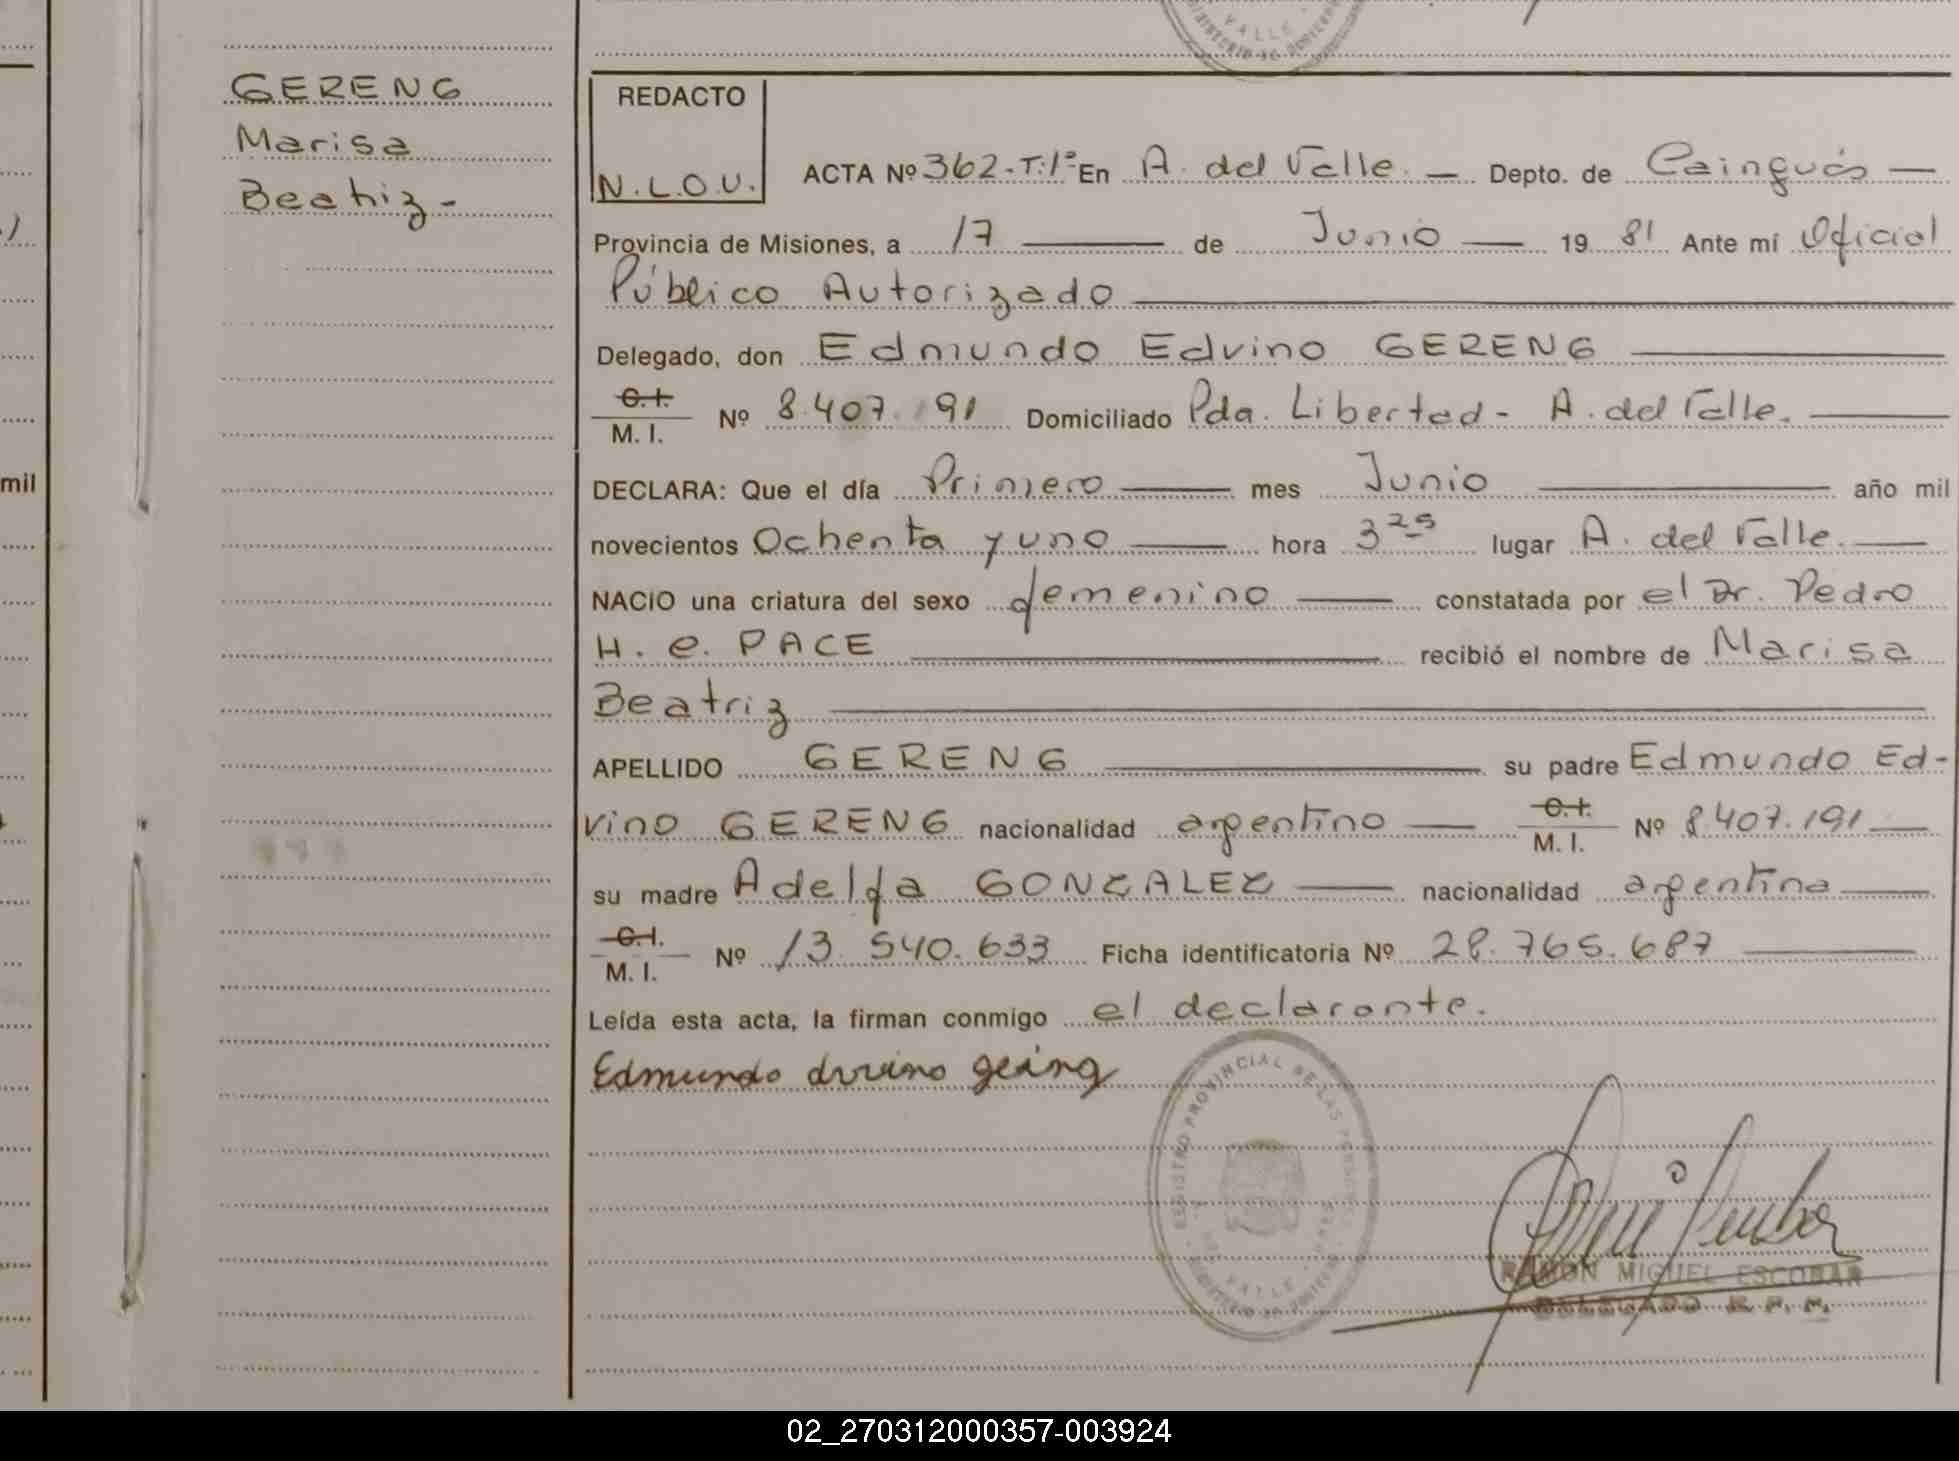 GERENG
Marisa
Beatriz -
REDACTO
N.L.O.U.
ACTA Nº 362-T:1º En A. del Valle. — Depto. de Cainguás —
Provincia de Misiones, a 17 — de Junio — 19 81 Ante mí Oficial
Público Autorizado
Delegado, don Edmundo Edvino GERENG
C.I.
M. I. Nº 8.407.191 Domiciliado Pda. Libertad - A. del Valle.
mil
DECLARA: Que el día Primero — mes Junio — año mil
novecientos Ochenta y uno — hora 3 25 lugar A. del Valle. —
NACIO una criatura del sexo femenino — constatada por el Dr. Pedro
H. e. PACE — recibió el nombre de Marisa
Beatriz
APELLIDO GERENG — su padre Edmundo Ed-
vino GERENG nacionalidad argentino — C.I.
M. I. Nº 8.407.191 —
su madre Adelfa GONZALEZ — nacionalidad argentina —
C.I.
M. I. Nº 13.540.633 Ficha identificatoria Nº 28.765.687 —
Leída esta acta, la firman conmigo el declarante.
Edmundo dvino gereng
REGISTRO PROVINCIAL DE LAS PERSONAS
VALLE
MINISTERIO DE GOBIERNO
RAMON MIGUEL ESCOBAR
DELEGADO R. P. P.
02_270312000357-003924